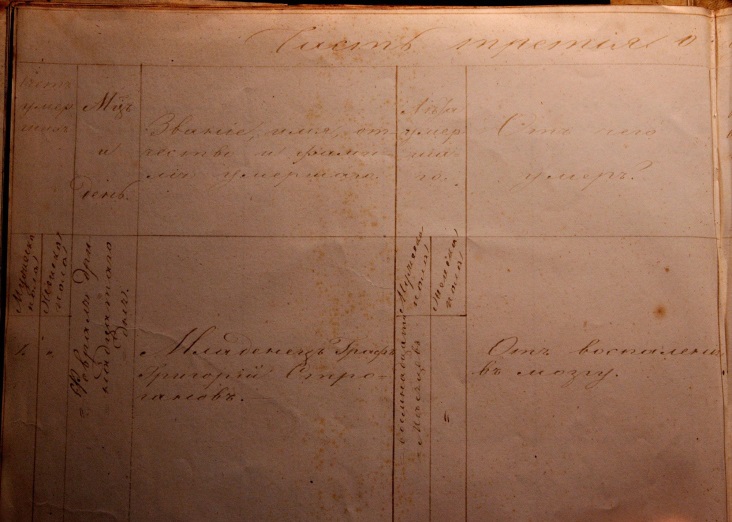 Часть третія о
Счетъ
умер
шихъ
Мцъ
и
день.
Званіе, имя, от
чество и фами
лія умершаго.
Лѣта
умер
шаго.
Отъ чего
умеръ?
Мужеска
пола
Женска
пола
Мужеска
пола
Женска
пола
1.
"
Февраля два
надцатаго
дня.
Младенецъ Графъ
Григорій Стро-
гановъ.
восемнадцати
Мѣсяцевъ
Отъ воспаленія
въ мозгу.